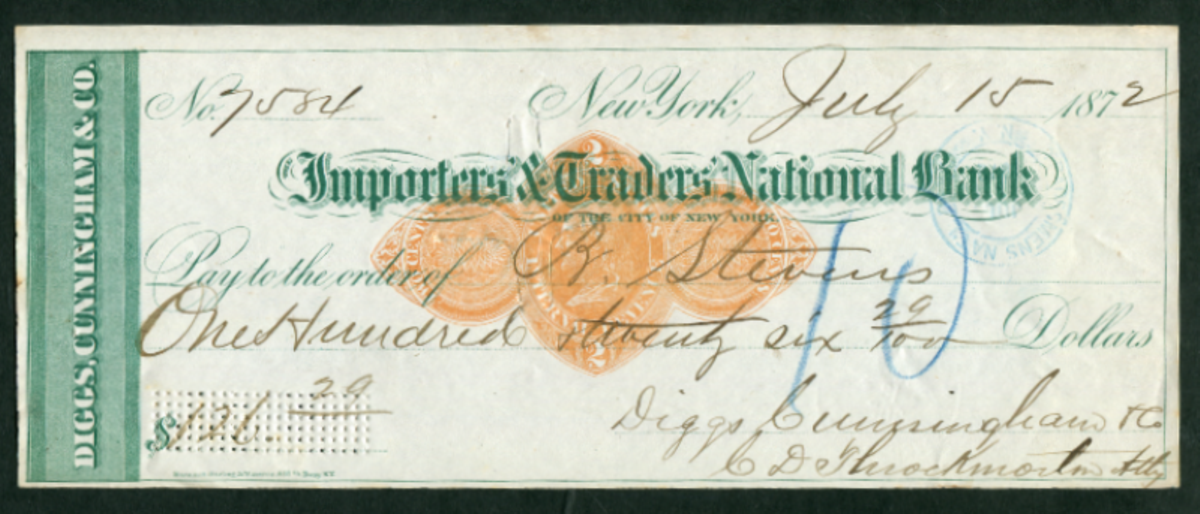 DIGGS, CUNNINGHAM & CO.
No. 7584 New York, July 15 1872
Importers & Traders National Bank
OF THE CITY OF NEW YORK
Pay to the order of R Stevens
One Hundred & twenty six 29/100 Dollars
$126.29
Diggs Cunningham & Co
C D Throckmorton Atty
10
2
2